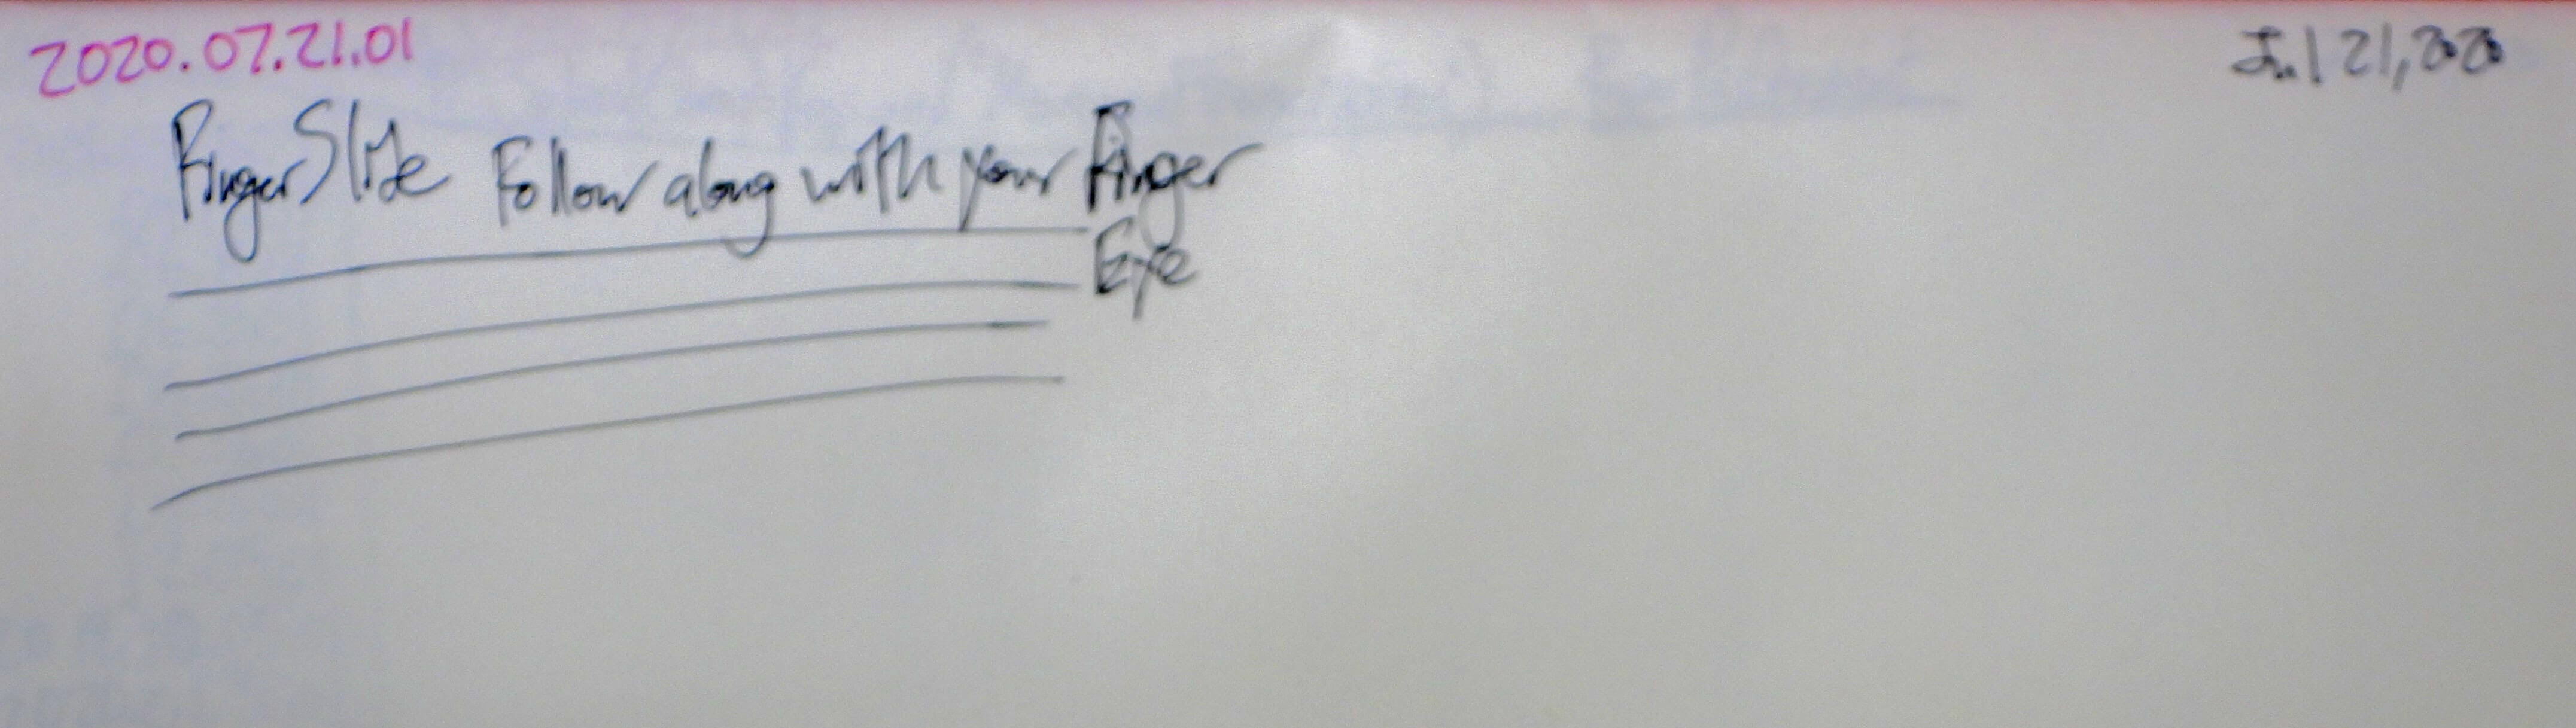 2020.07.21.01
Jul 21, 2020
Finger Slide Follow along with your Finger
Eye